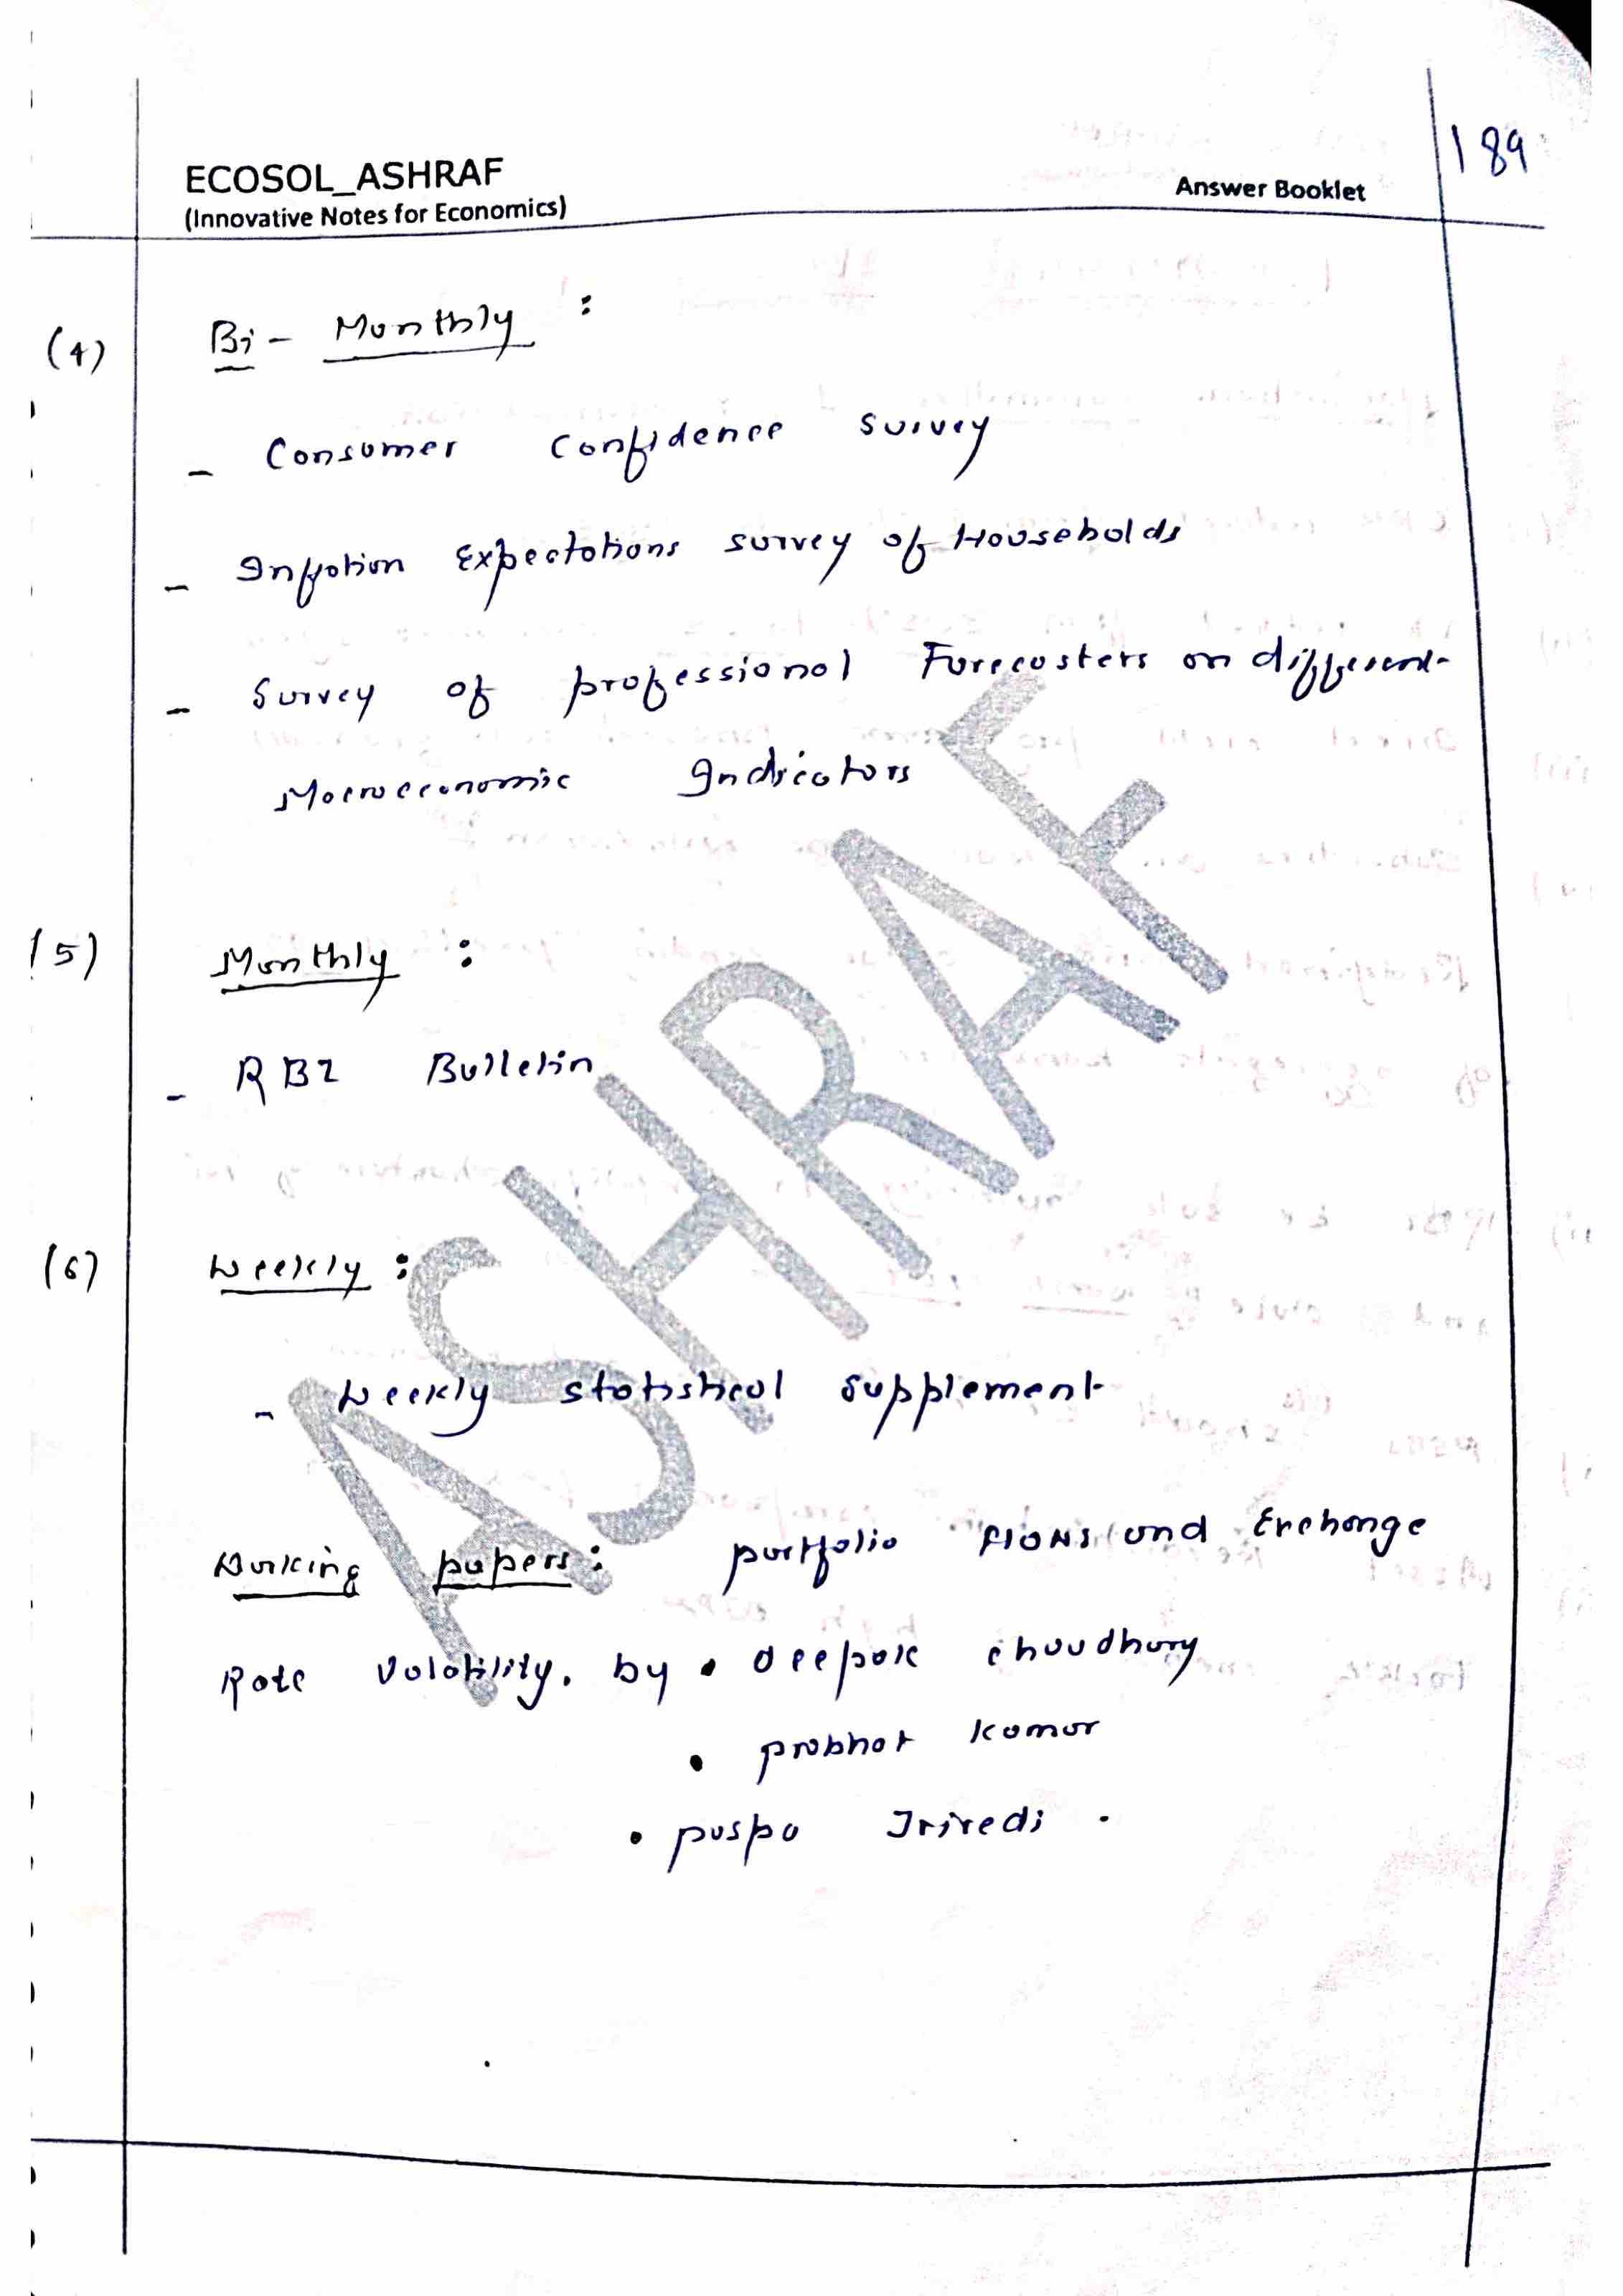 189
ECOSOL_ASHRAF
(Innovative Notes for Economics)
Answer Booklet
(4) Bi - Monthly :
- Consumer Confidence Survey
- Inflation Expectations survey of Households
- Survey of professional Forecasters on different
Macroeconomic Indicators
(5) Monthly :
- RBI Bulletin
(6) Weekly :
- Weekly statistical supplement
Working papers: portfolio flows and Exchange
Rate Volatility. by • Deepak Choudhury
• Prabhat Kumar
• puspa Trivedi .
ASHRAF